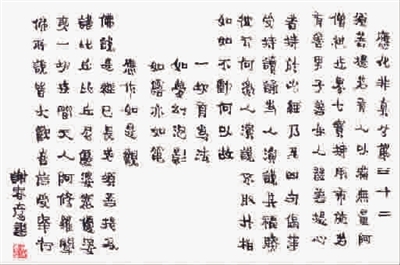 應化非真分第三十二
須菩提若有人以滿無量阿
僧祇世界七寶持用布施若
有善男子善女人發菩提心
者持於此經乃至四句偈等
受持讀誦為人演說其福勝
彼云何為人演說不取於相
如如不動何以故
一切有為法
如夢幻泡影
如露亦如電
應作如是觀
佛說是經已長老須菩提及
諸比丘比丘尼優婆塞優婆
夷一切世間天人阿修羅聞
佛所說皆大歡喜信受奉行